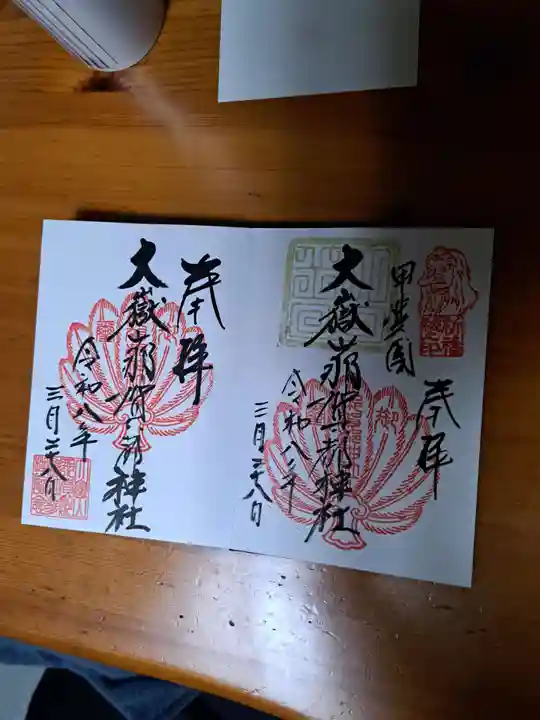 奉拝
大嶽山那賀都神社
令和八年
三月二十八日
甲斐国
奉拝
大嶽山那賀都神社
令和八年
三月二十八日